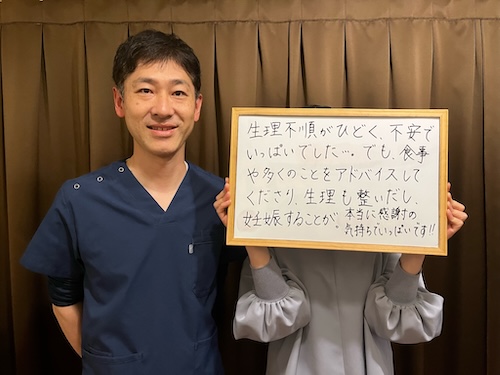 生理不順がひどく、不安で
いっぱいでした…。でも、食事
や多くのことをアドバイスして
くださり、生理も整いだし、
妊娠することが。本当に感謝の
気持ちでいっぱいです!!